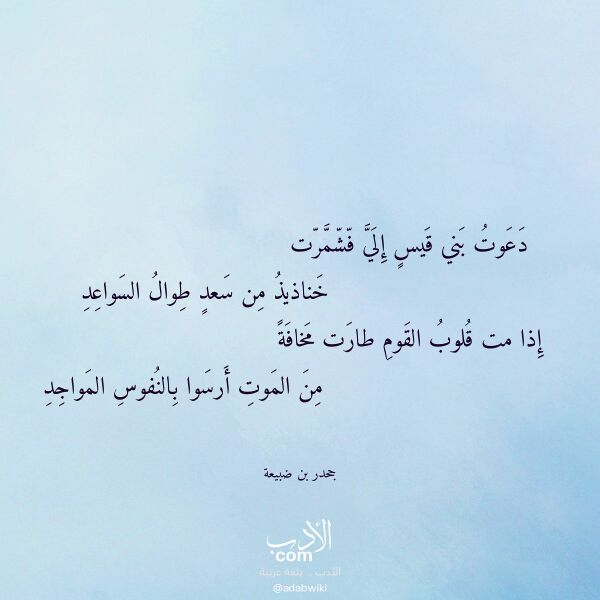 دَعَوتُ بَني قَيسٍ إِلَيَّ فّشّمَّرّت
خَناذيذُ مِن سَعدٍ طِوالُ السَواعِدِ
إِذا مت قُلوبُ القَومِ طارَت مَخافَةً
مِنَ المَوتِ أَرسَوا بِالنُفوسِ المَواجِدِ
جحدر بن ضبيعة
الأدب
com
الأدب .. بلغة عربية
@adabwiki